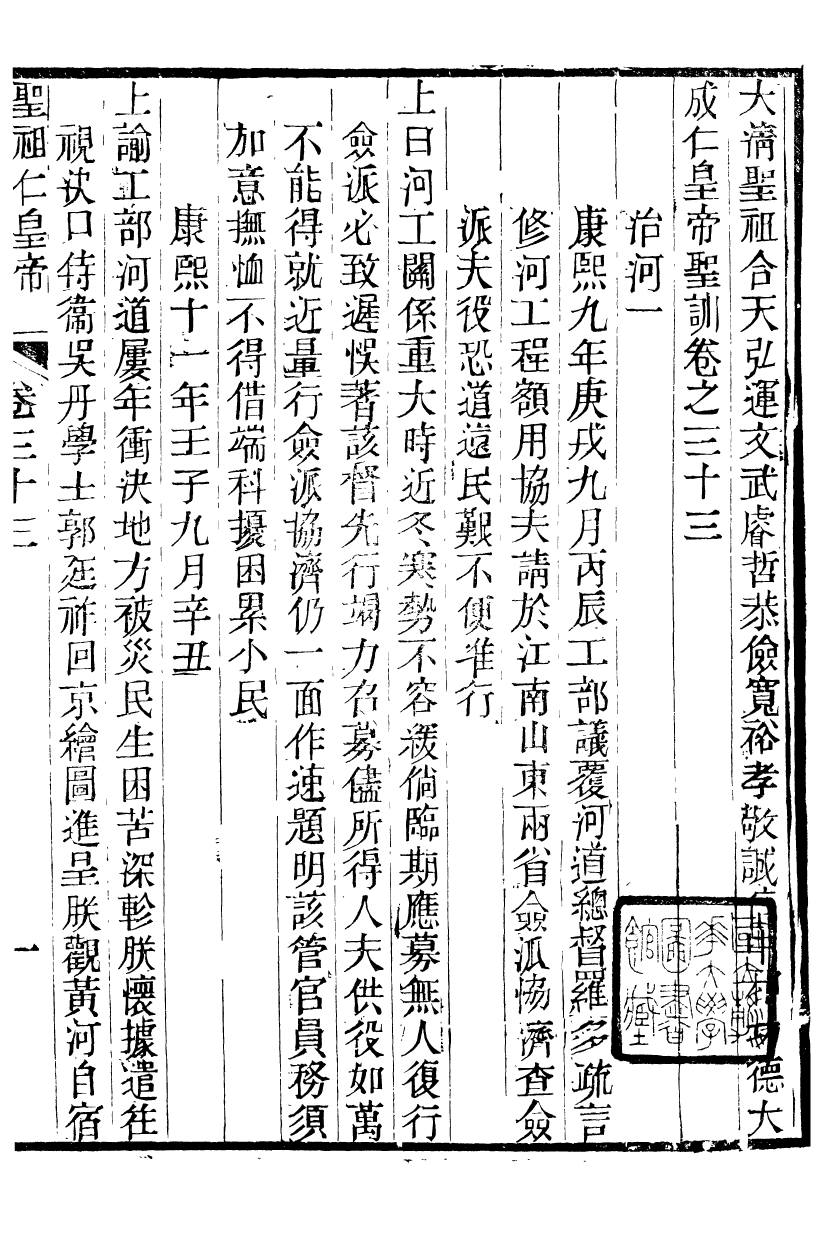 大淸聖祖合天弘運文武睿哲恭儉寬裕孝敬誠信德大
成仁皇帝聖訓卷之三十三
治河一
康熙九年庚戌九月丙辰工部議覆河道總督羅多疏言
修河工程額用協夫請於江南山東兩省僉派協濟查僉
派夫役恐道遠民艱不便准行
上曰河工關係重大時近冬寒勢不容緩倘臨期應募無人復行
僉派必致遲悞著該督先行竭力召募儘所得人夫供役如萬
不能得就近量行僉派協濟仍一面作速題明該管官員務須
加意撫恤不得借端科擾困累小民
康熙十一年壬子九月辛丑
上諭工部河道屢年衝決地方被災民生困苦深軫朕懷據遣往
視決口侍衞吳丹學士郭廷祚回京繪圖進呈朕觀黃河自宿
聖祖仁皇帝 卷三十三 一
國立清華大學圖書館藏